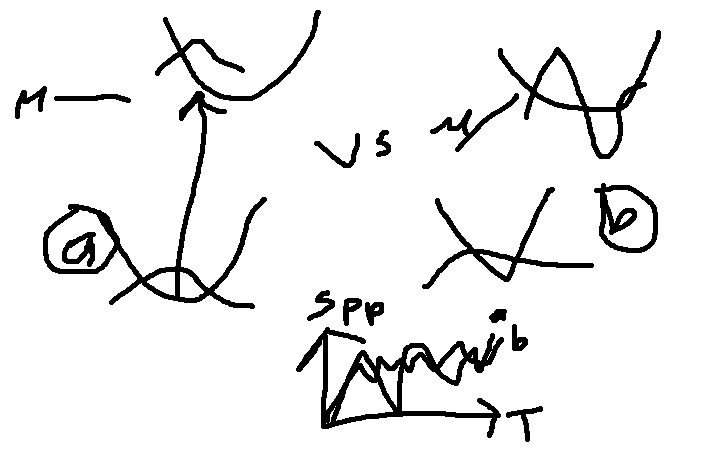 M
vs
μ
a
b
Spp
a
b
T